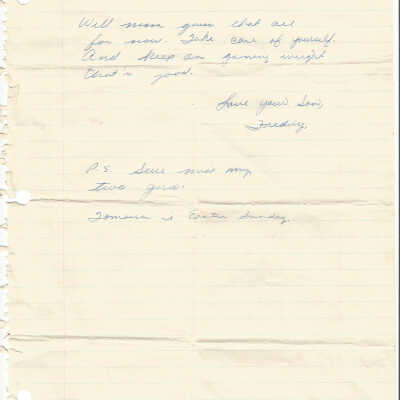 Well mom guess that all
for now. Take care of yourself.
And keep on gaining weight
that's good.
Love your Son,
Freddy.
P.S. Sure miss my
two
is Easter Sunday.